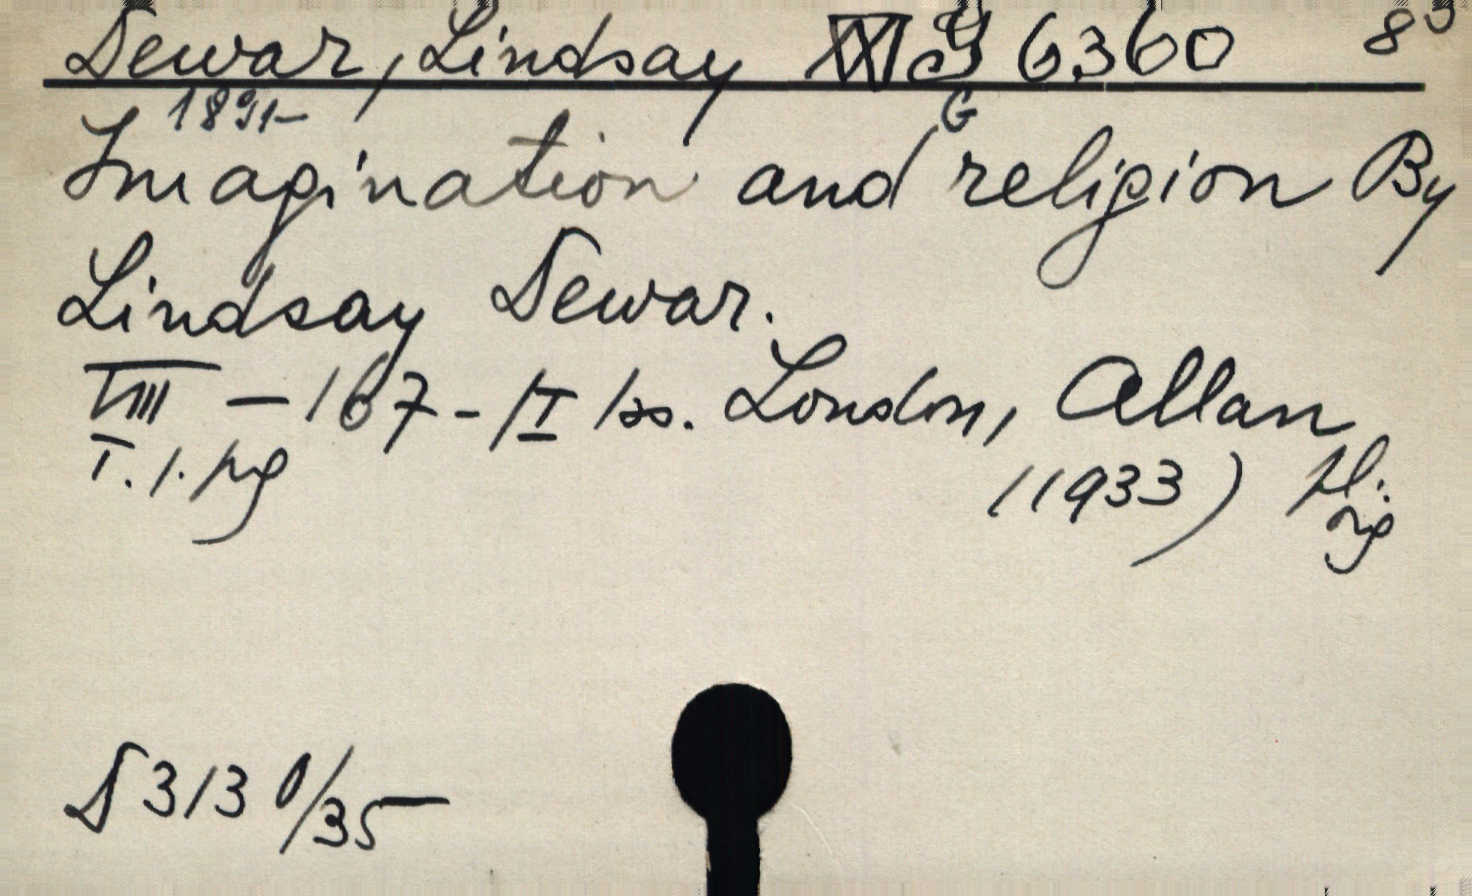 Dewar, Lindsay XXI G 6360 8°
1891- G
Imagination and religion By
Lindsay Dewar.
VIII - 167 - I I lss. London, Allan
T. l. pg (1933)
D 313 0/35